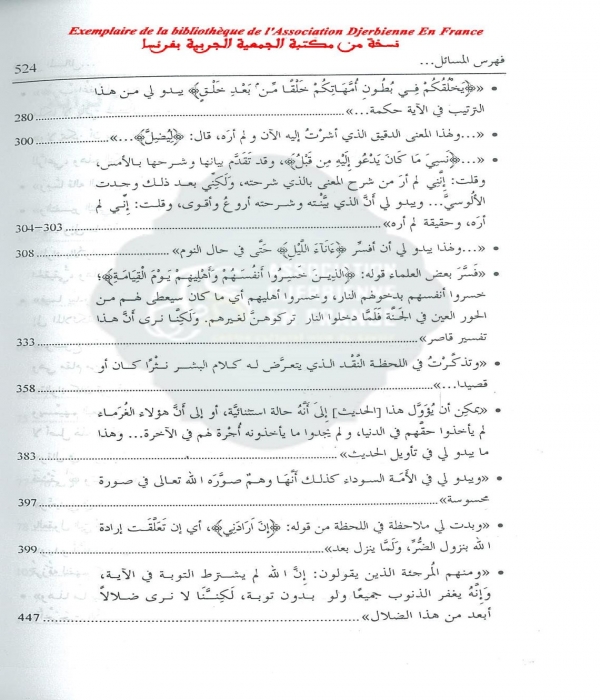 Exemplaire de la bibliothèque de l'Association Djerbienne En France
نسخة من مكتبة الجمعية الجربية بفرنسا
فهرس المسائل... 524
• «﴿يَخْلُقُكُمْ فِي بُطُونِ أُمَّهَاتِكُمْ خَلْقًا مِّنْ بَعْدِ خَلْقٍ﴾ يبدو لي من هذا
الترتيب في الآية حكمة...» 280
• «...وهذا المعنى الدقيق الذي أشرْتُ إليه الآن و لم أرَه، قال: ﴿لِيُضِلَّ﴾...» 300
• «...﴿نَسِيَ مَا كَانَ يَدْعُو إِلَيْهِ مِن قَبْلُ﴾، وقد تَقَدَّم بيانها وشرحها بالأمس،
وقلت: إنَّنِي لم أرَ من شرح المعنى بالذي شرحته، وَلَكِنِّي بعد ذلك وجدت
الألُوسيَّ... ويبدو لي أنَّ الذي بيَّنْته وشرحته أروعُ وأقوى، وقلت: إنِّي لم
أرَه، وحقيقة لم أره» 303–304
• «...وهذا يبدو لي أن أفسِّر ﴿ءَانَاءَ اللَّيْلِ﴾ حَتَّى في حال النوم» 308
• «فَسَّرَ بعض العلماء قوله: ﴿الذِينَ خَسِرُوا أَنفُسَهُمْ وَأَهْلِيهِمْ يَوْمَ الْقِيَامَةِ﴾؛
خسروا أنفسهم بدخولهم النار، وخسروا أهليهم أي ما كان سيعطى لهم من
الحور العين في الجَنَّة فَلَمَّا دخلوا النار تركوهنَّ لغيرهم. وَلَكِنَّا نرى أنَّ هذا
تفسير قاصر» 333
• «وتذكَّرْتُ في اللحظة النَّقْد الذي يتعرَّض له كلام البشر نثْرًا كان أو
قصيدا...» 358
• «يمكن أن يُؤَوَّل هذا [الحديث] إلى أنَّهُ حالة استثنائيَّة، أو إلى أنَّ هؤلاء الغُرماء
لم يأخذوا حقَّهم في الدنيا، و لم يجدوا ما يأخذونه أُجْرة لهم في الآخرة... وهذا
ما يبدو لي في تأويل الحديث» 383
• «ويبدو لي في الأَمَة السوداء كذلك أنَّهَا وهمٌ صوَّرَه الله تعالى في صورة
محسوسة» 397
• «وبدت لي ملاحظة في اللحظة من قوله: ﴿إِنَ اَرَادَنِي﴾، أي إن تَعَلَّقَت إرادة
الله بنزول الضُّرِّ، وَلَمَّا ينزل بعد» 399
• «ومنهم المرجئة الذين يقولون: إنَّ الله لم يشترط التوبة في الآية،
وَإِنَّهُ يغفر الذنوب جميعًا ولو بدون توبة، لَكِنَّنَا لا نرى ضلالاً
أبعد من هذا الضلال» 447